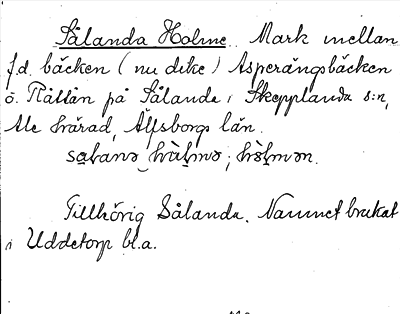 Sålanda Holme. Mark mellan
f.d. bäcken (nu dike) Asperängsbäcken
o. på Sålanda i Skepplanda s:n,
Ale härad, Älfsborgs län.
Tillhörig Sålanda. Namnet brukat
i Uddetorp bl.a.